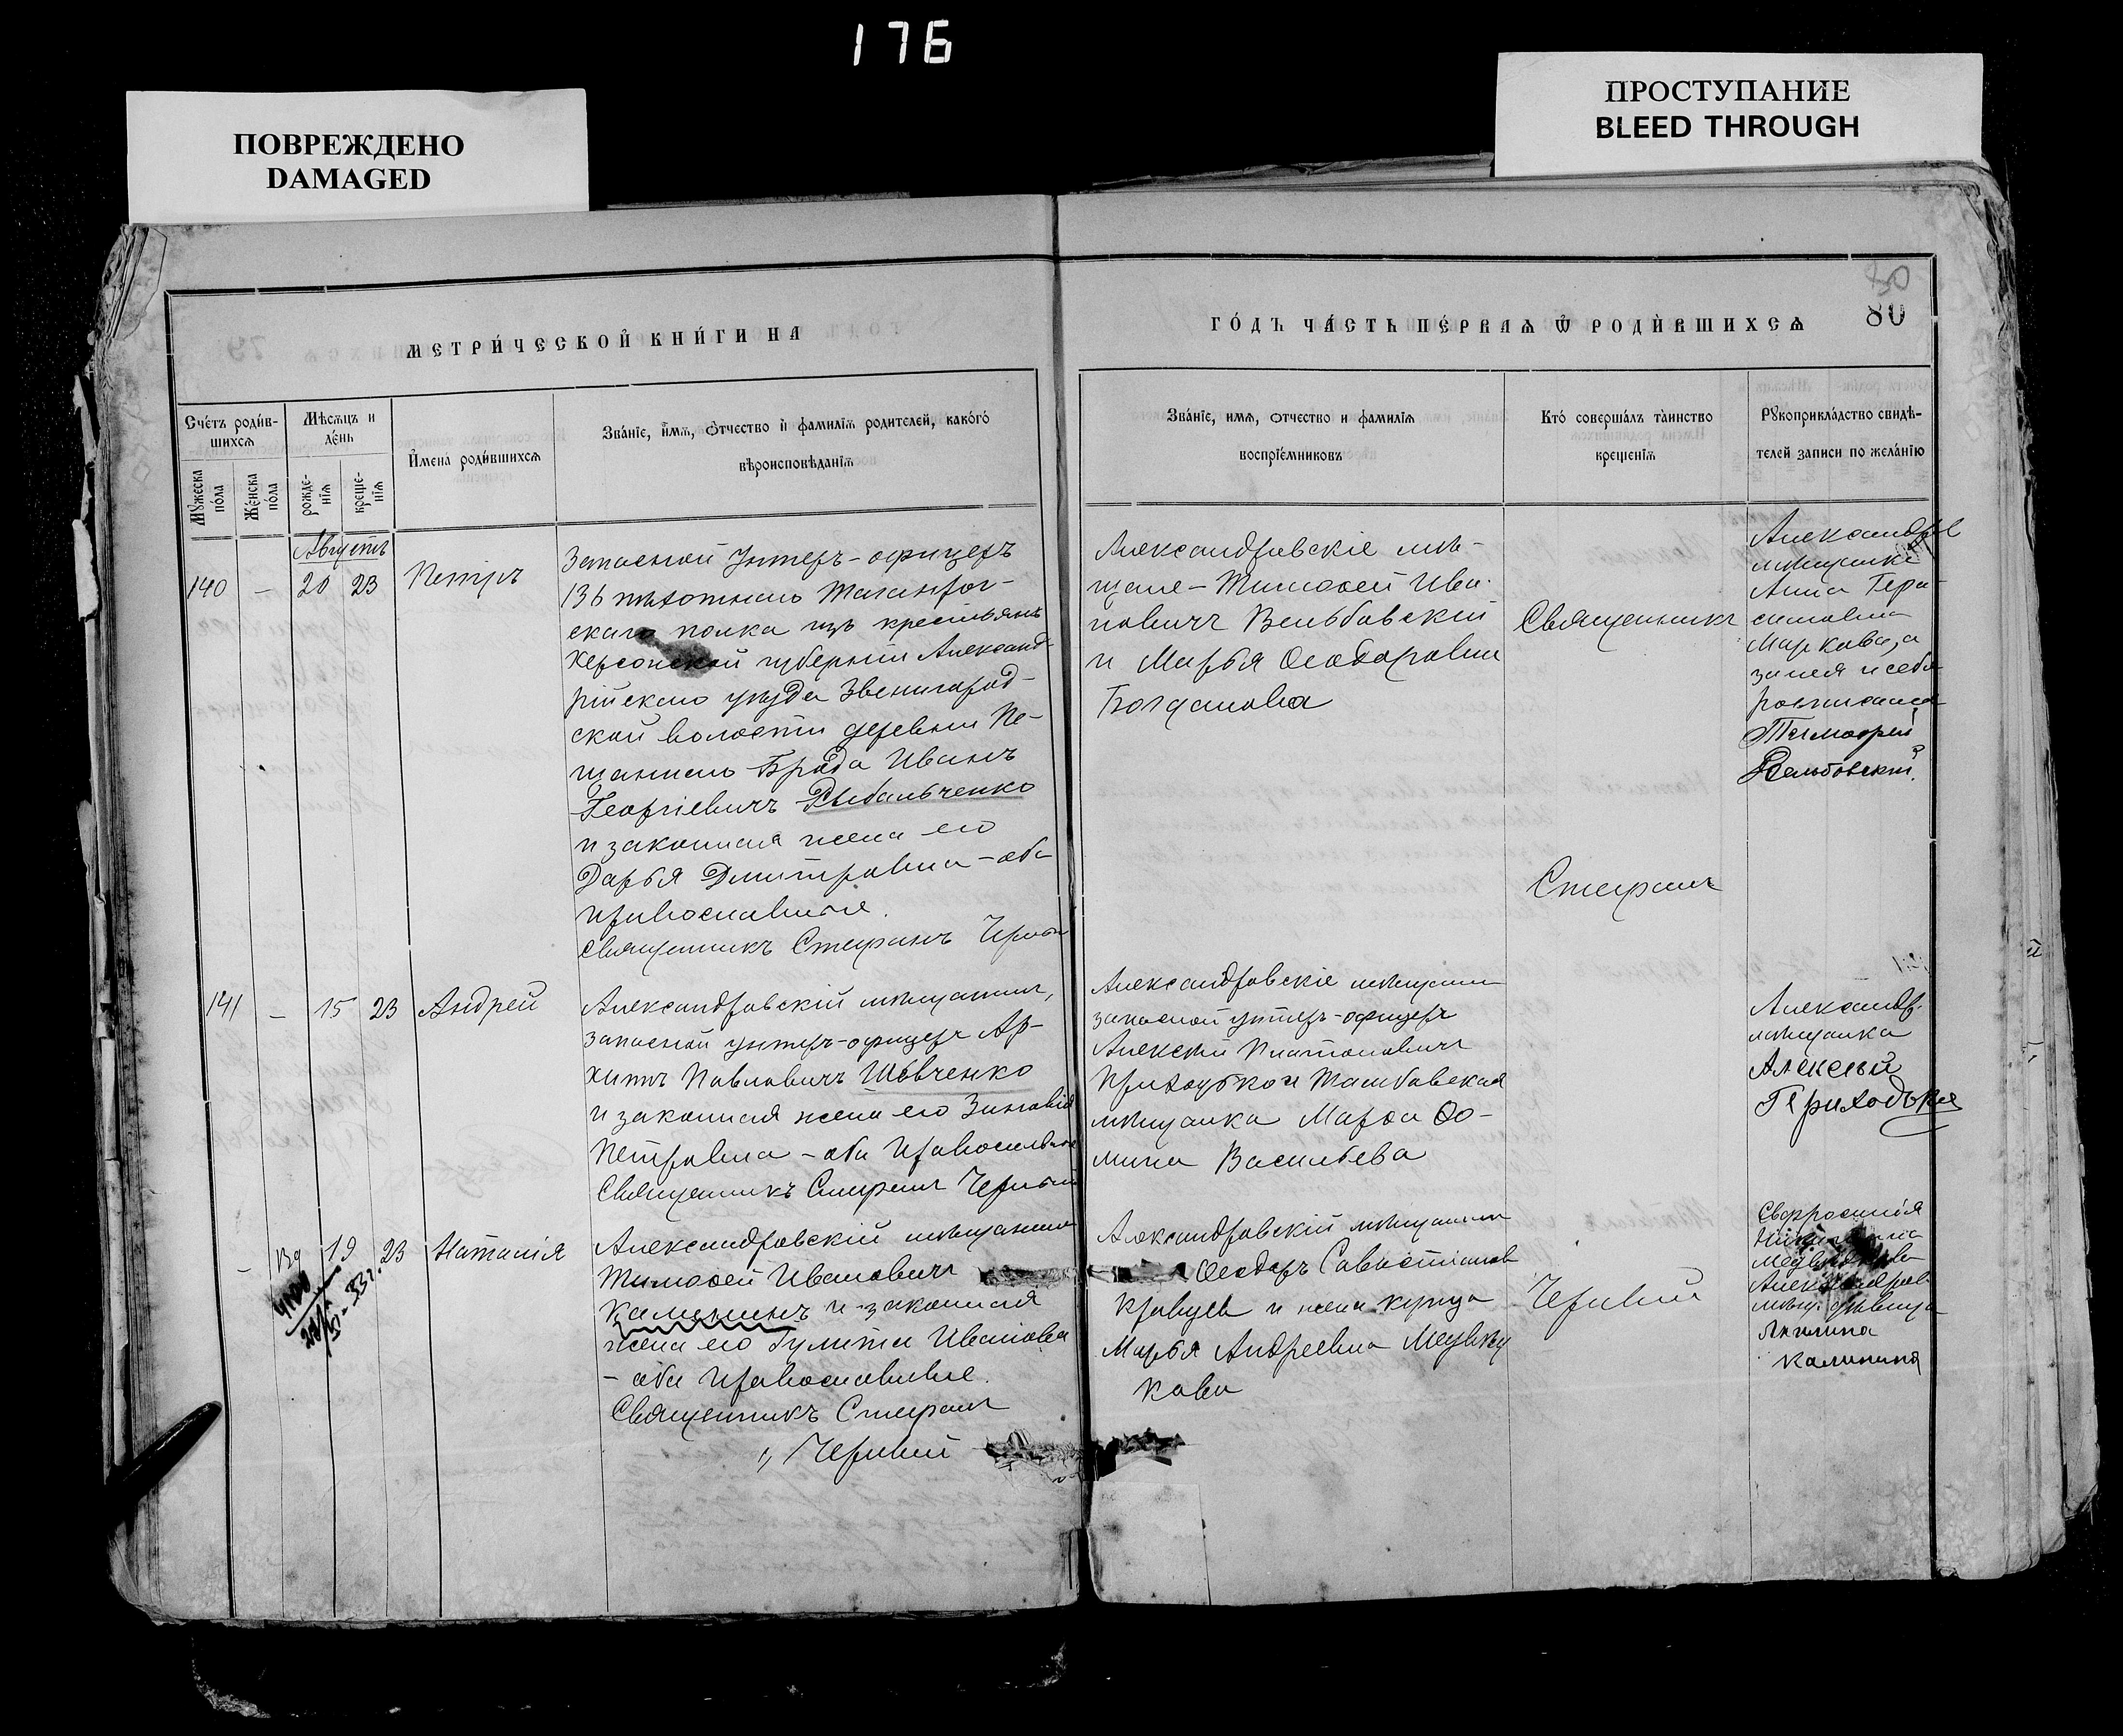 176
ПОВРЕЖДЕНО
DAMAGED
ПРОСТУПАНИЕ
BLEED THROUGH
МЕТРИ́ЧЕСКОЙ КНИ́ГИ НА
ГО́ДЪ ЧА́СТЬ ПЕ́РВАѦ Ѿ РОДИ́ВШИХСѦ
80
Сче́тъ роди́в-
шихсѧ
Мѣсѧцъ и
де́нь
И҆мена роди́вшихсѧ
Зва́нїе, и҆мѧ, ѻтчество и҆ фамилїѧ родителей, како́гѡ
вѣроисповѣданїѧ
Мꙋжеска
по́ла
Же́нска
по́ла
рожде-
нїѧ
креще-
нїѧ
Зва́нїе, имѧ, ѻтчество и фамилїѧ
воспрїе́мниковъ
Кто́ соверша́лъ та̀инство
крещенїѧ
Рꙋкоприкла́дство свидѣ-
телей записи по жела́нїю
Августъ
140
—
20
23
Петръ
Запасной Унтеръ-офицеръ
136 пѣхотнаго Таганрог-
скаго полка изъ крестьянъ
Херсонской губерніи Александ-
рійскаго уѣзда Звенигород-
ской волости деревни Пе-
щанаго Брода Иванъ
Георгіевичъ Рыбальченко
и законная жена его
Дарья Дмитровна - оба
православные.
Священникъ Стефанъ
Александровскіе мѣ-
щане - Тимоѳей Ива-
новичъ Вельбовскій
и Марья Ѳеодоровна
Богданова
Священникъ
Стефанъ
Анна Гера-
симовна
Маркова, а
за нея и себя
Тимофей
Вельбовский.
141
—
15
23
Андрей
Александровскій мѣщанинъ,
запасной унтеръ-офицеръ Ар-
хипъ Павловичъ Шевченко
и законная жена его Зиновія
Петровна - оба православные
Священникъ Стефанъ Черный
Александровскіе мѣщанинъ
запасной унтеръ-офицеръ
Алексѣй Платоновичъ
Приходько и Тамбовская
мѣщанка Марѳа Ѳо-
мина Васильева
Александр.
мѣщанка
Алексѣй
Приходька
—
139
19
23
Наталія
Александровскій мѣщанинъ
Тимоѳей Ивановичъ
Калининъ и законная
жена его Іулита Иванова
- оба православные.
Священникъ Стефанъ
Черный
Александровскій мѣщанинъ
Ѳеодоръ
Кравцев и жена купца
Марья Андреевна
кова
Черный
Акилина
Калинина